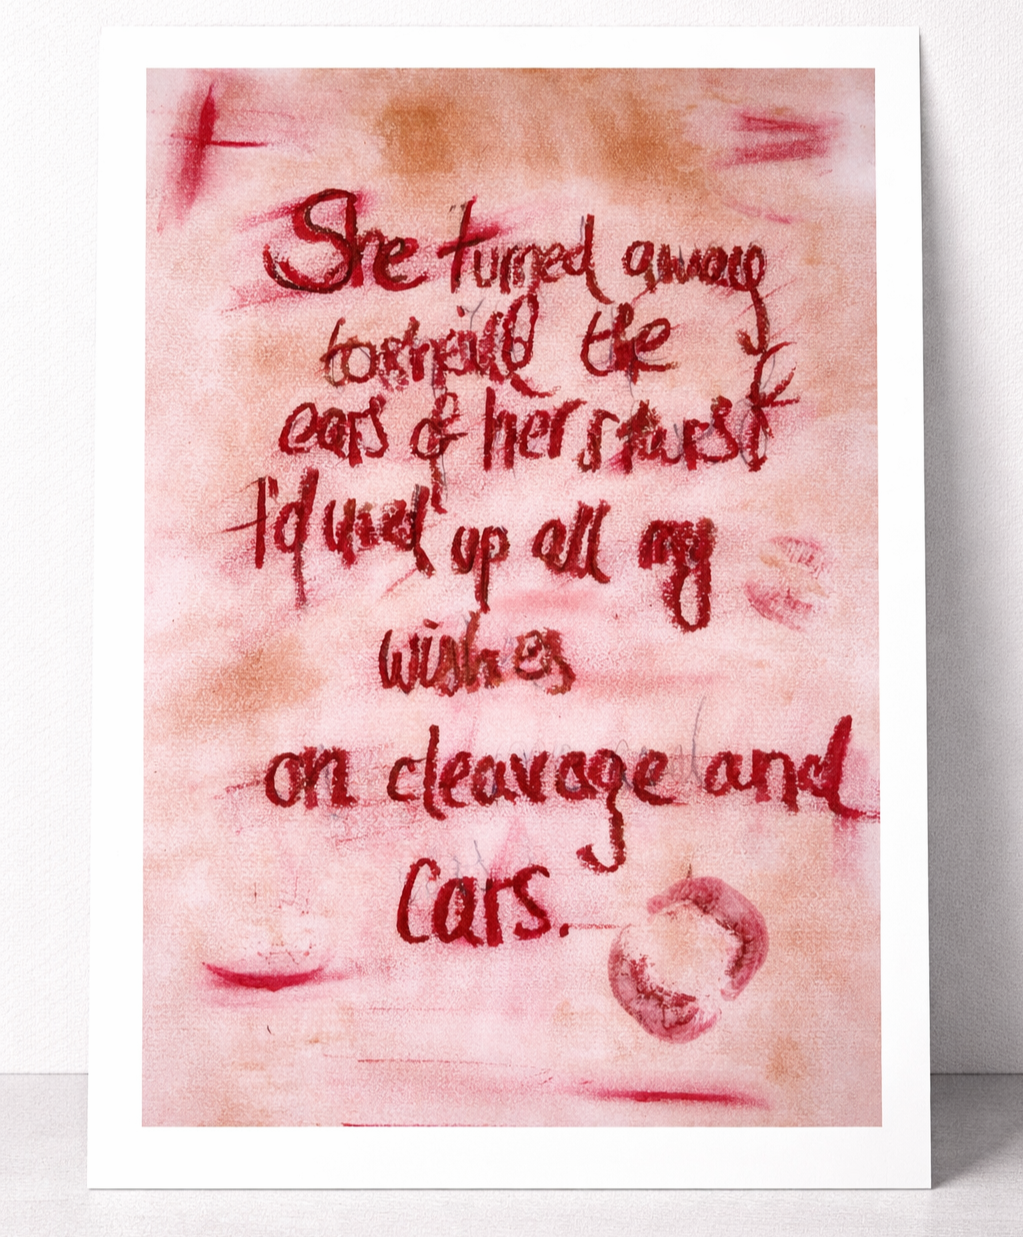 She turned away
to shield the
ears of her stars
I'd used up all my
wishes
on cleavage and
Cars.